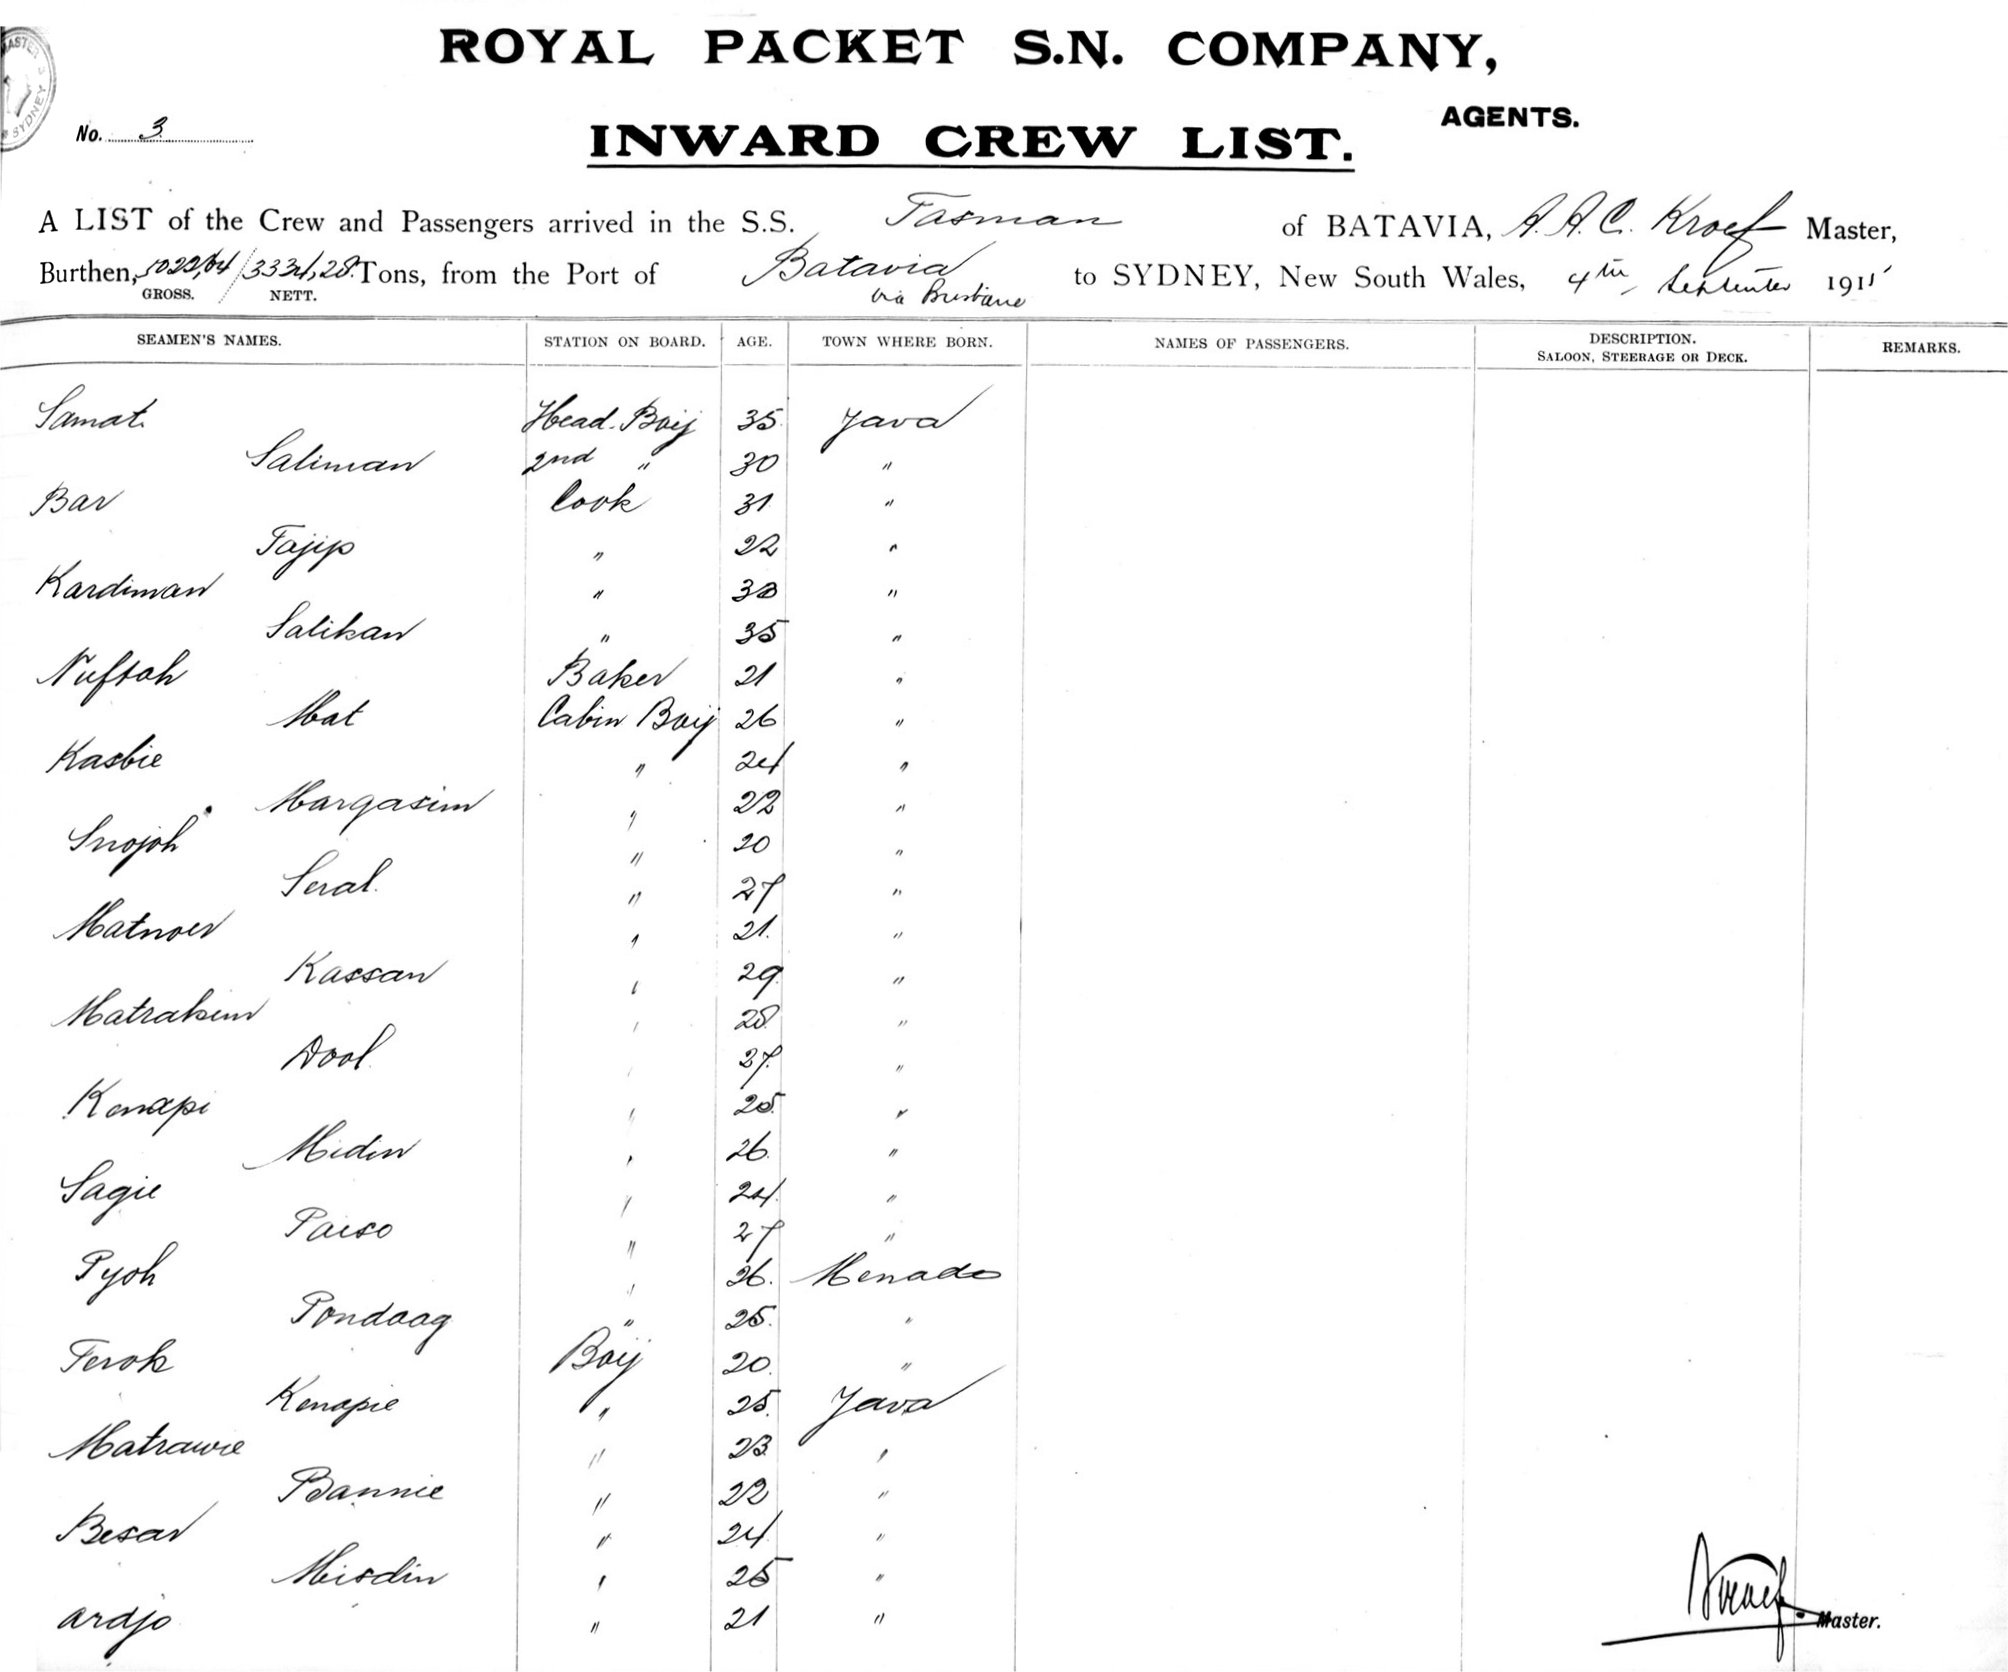 ROYAL PACKET S.N. COMPANY,
AGENTS.
No. 3
INWARD CREW LIST.
A LIST of the Crew and Passengers arrived in the S.S. Tasman of BATAVIA, A. A. C. Kroef Master,
Burthen, 5022,64/3334,28 Tons, from the Port of Batavia via Brisbane to SYDNEY, New South Wales, 4th September 1915
GROSS. NETT.
SEAMEN'S NAMES. STATION ON BOARD. AGE. TOWN WHERE BORN. NAMES OF PASSENGERS. DESCRIPTION. SALOON, STEERAGE OR DECK. REMARKS.
Samat. Head Boij 35 Java
Saliman 2nd " 30 "
Bar Cook 31 "
Tajip " 22 "
Kardiman " 30 "
Salikan " 35 "
Nuftah Baker 21 "
Mat Cabin Boij 26 "
Kasbie " 24 "
Margasim " 22 "
Snojoh " 20 "
Seral. " 27 "
Matnoer " 21. "
Kassan " 29 "
Matrakim " 28 "
Dool " 27. "
Konapi " 25. "
Midin " 26. "
Sagie " 24. "
Paiso " 27 "
Pyoh " 26. Menado
Pondaag " 25. "
Terok Boij 20. "
Kenapie " 25. Java
Matrawie " 23 "
Bannie " 22 "
Besar " 24 "
Misdin " 25 "
ardjo " 21 "
Kroef Master.